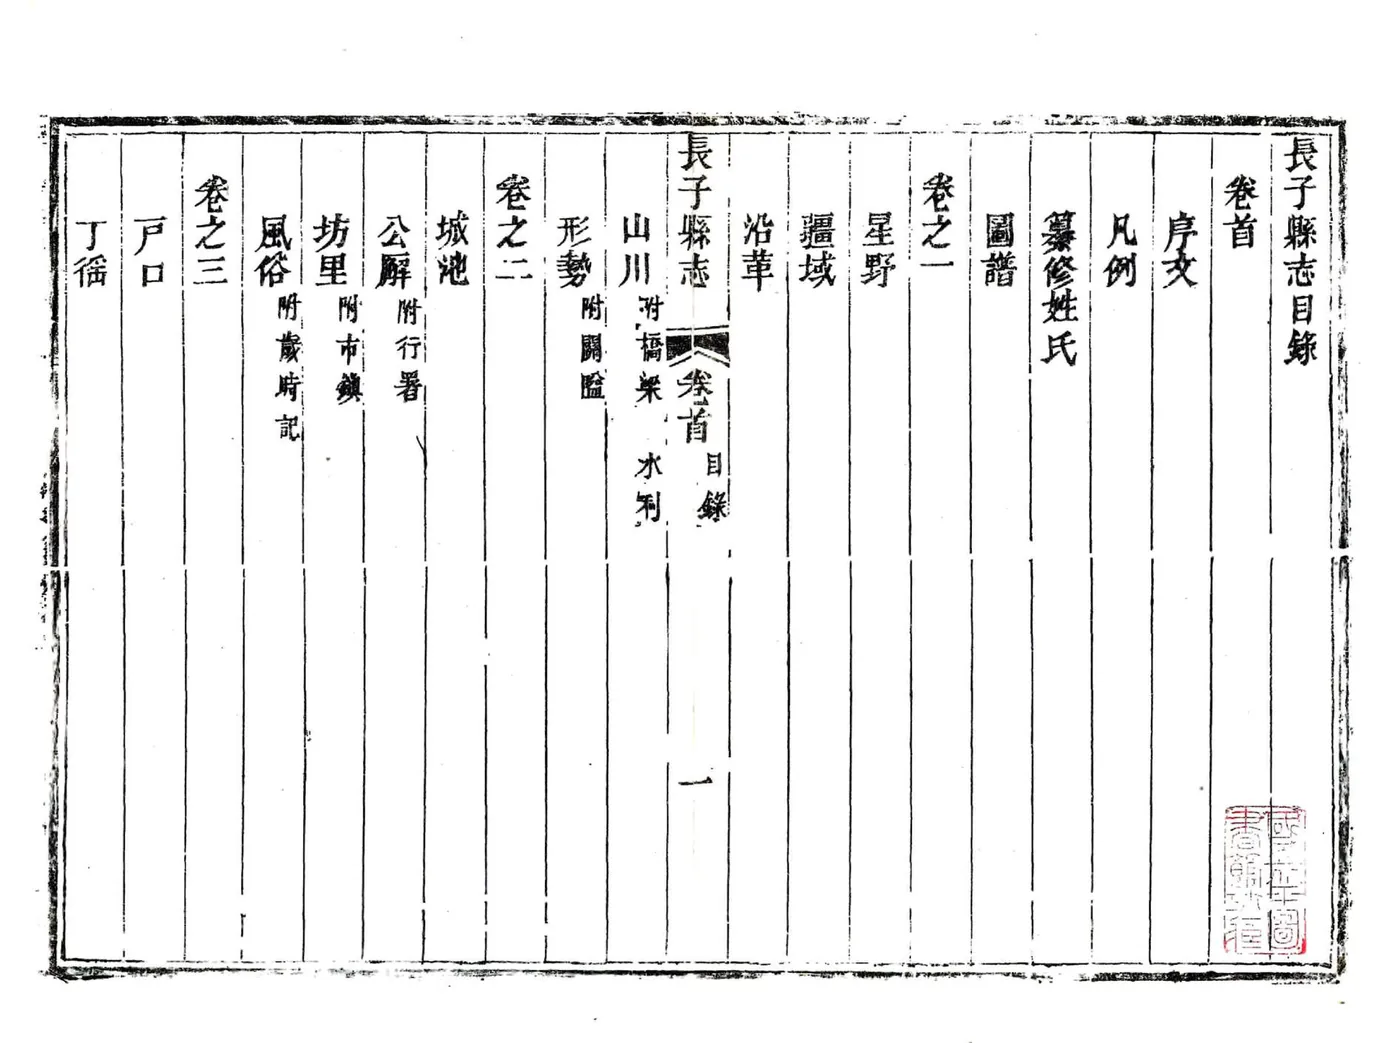 長子縣志目錄
卷首
序文
凡例
纂修姓氏
圖譜
卷之一
星野
疆域
沿革
長子縣志 卷首 目錄 一
山川 附橋梁 水利
形勢 附關隘
卷之二
城池
公廨 附行署
坊里 附市鎮
風俗 附歲時記
卷之三
戶口
丁徭